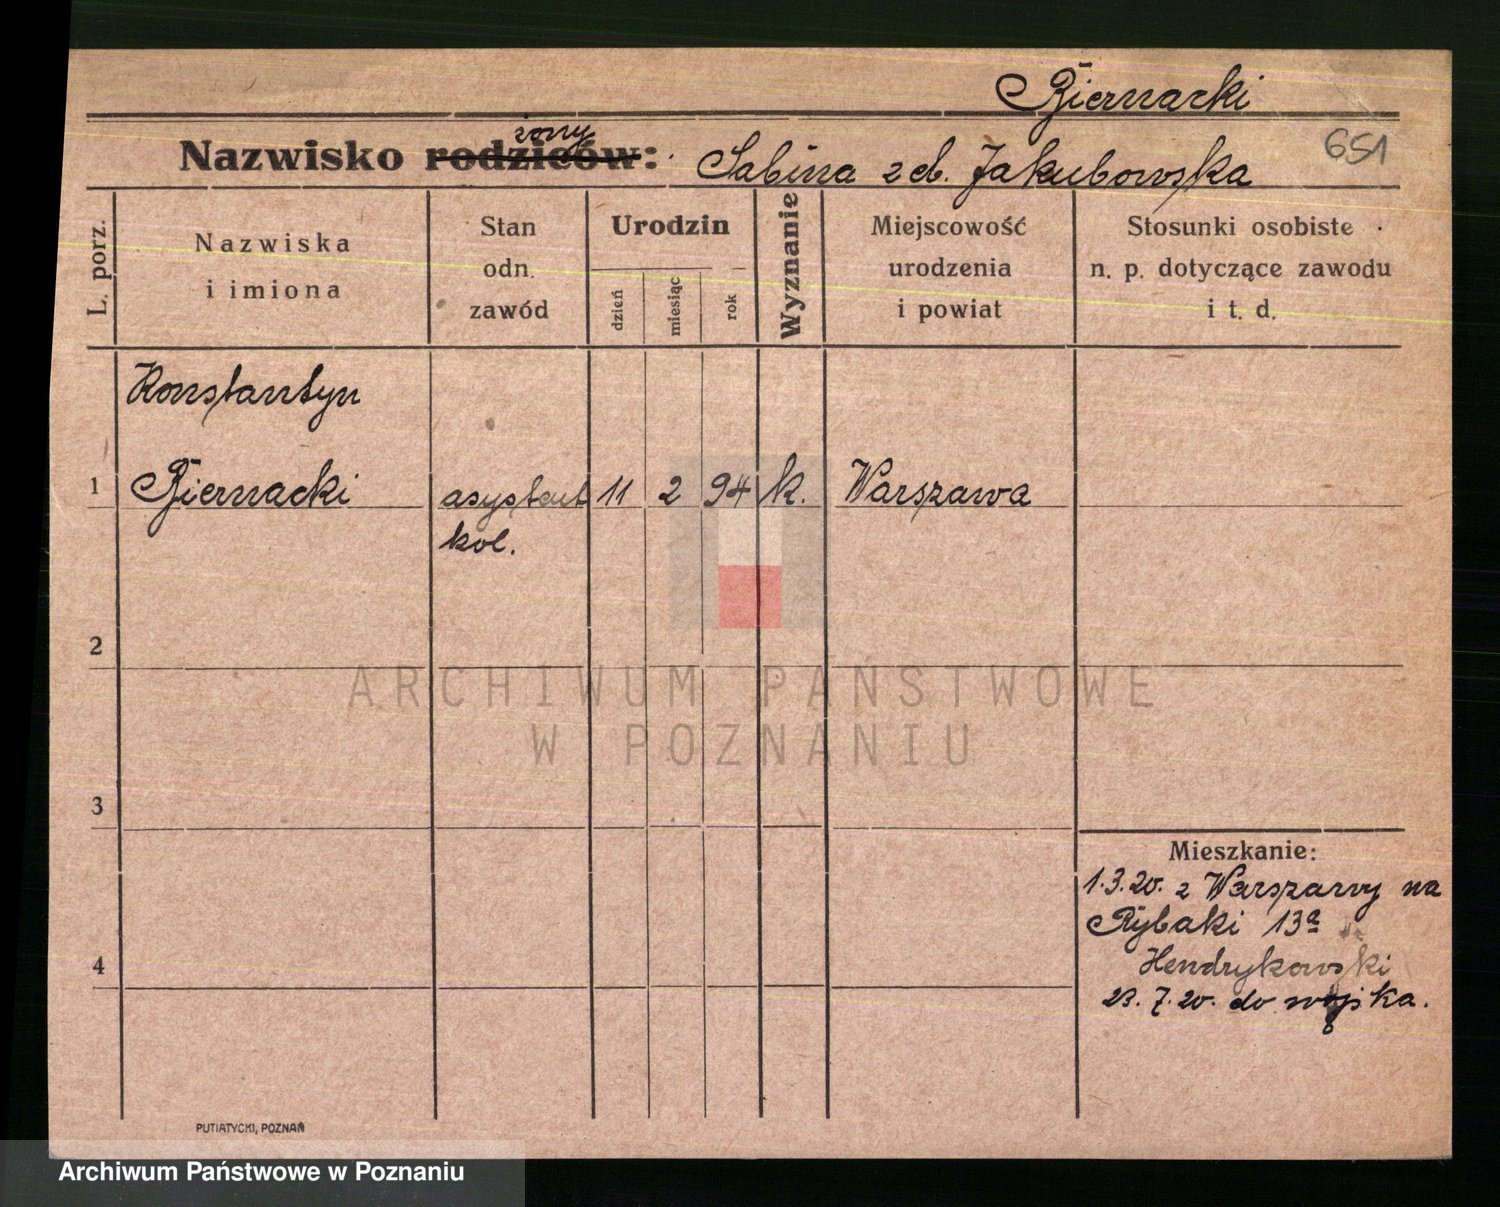 Biernacki
żony
Nazwisko rodziców: Sabina z d. Jakubowska
651
L. porz.
Nazwiska
i imiona
Stan
odn.
zawód
Urodzin
dzień
miesiąc
rok
Wyznanie
Miejscowość
urodzenia
i powiat
Stosunki osobiste
n. p. dotyczące zawodu
i t. d.
Konstantyn
1 Biernacki asystent 11 2 94 k. Warszawa
kol.
2
ARCHIWUM PAŃSTWOWE
W POZNANIU
3
Mieszkanie:
1.3.20. z Warszawy na
Rybaki 13a
Hendrykowski
4
23.7.20. do wojska.
PUTIATYCKI, POZNAŃ
Archiwum Państwowe w Poznaniu